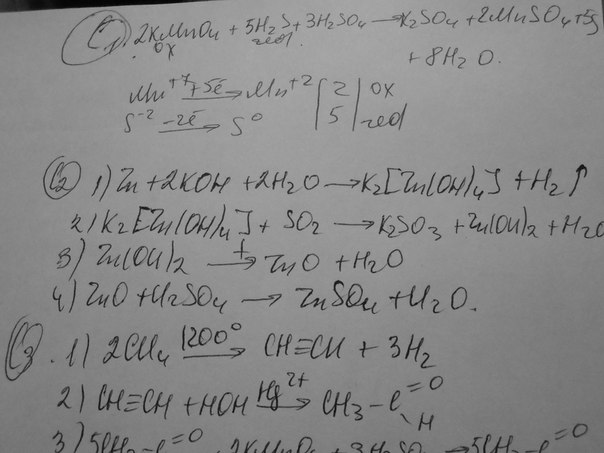 C1. 2KMnO4 + 5H2S + 3H2SO4 → K2SO4 + 2MnSO4 + 5S
ox red.
+ 8H2O.
Mn+7 +5ē → Mn+2 | 2 | ox
S-2 -2ē → S0 | 5 | red
C2 1) Zn + 2KOH + 2H2O → K2[Zn(OH)4] + H2↑
2) K2[Zn(OH)4] + SO2 → K2SO3 + Zn(OH)2 + H2O
3) Zn(OH)2 t→ ZnO + H2O
4) ZnO + H2SO4 → ZnSO4 + H2O.
C3. 1) 2CH4 1200°→ CH≡CH + 3H2
2) CH≡CH + HOH Hg2+→ CH3-C=O
\H
3) 5CH3-C=O 2KMnO4 + 3H2SO4 → 5CH3-C=O